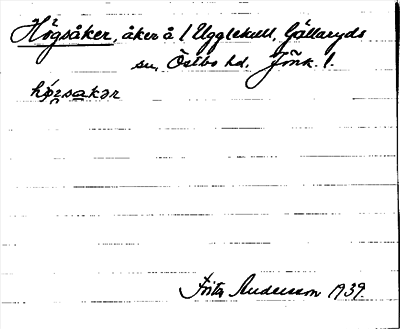 Högsåker, åker å 1 Ugglekull, Gällaryds
sn, Östbo hd, Jönk. l.
hö́gsakər
Frits Andersson 1939.